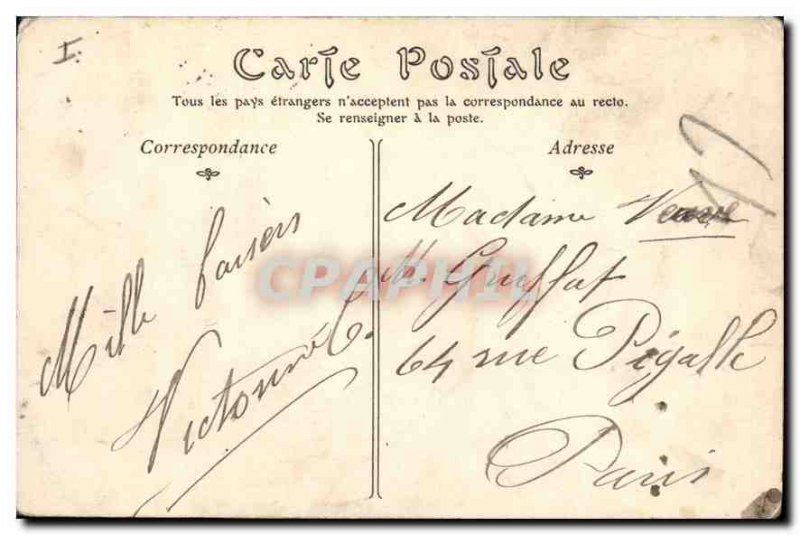 Carte Postale
Tous les pays étrangers n'acceptent pas la correspondance au recto.
Se renseigner à la poste.
Correspondance
Adresse
Mille baisers
Madame Veuve
M. Gruffat
64 rue Pigalle
Paris
CPAPHIL